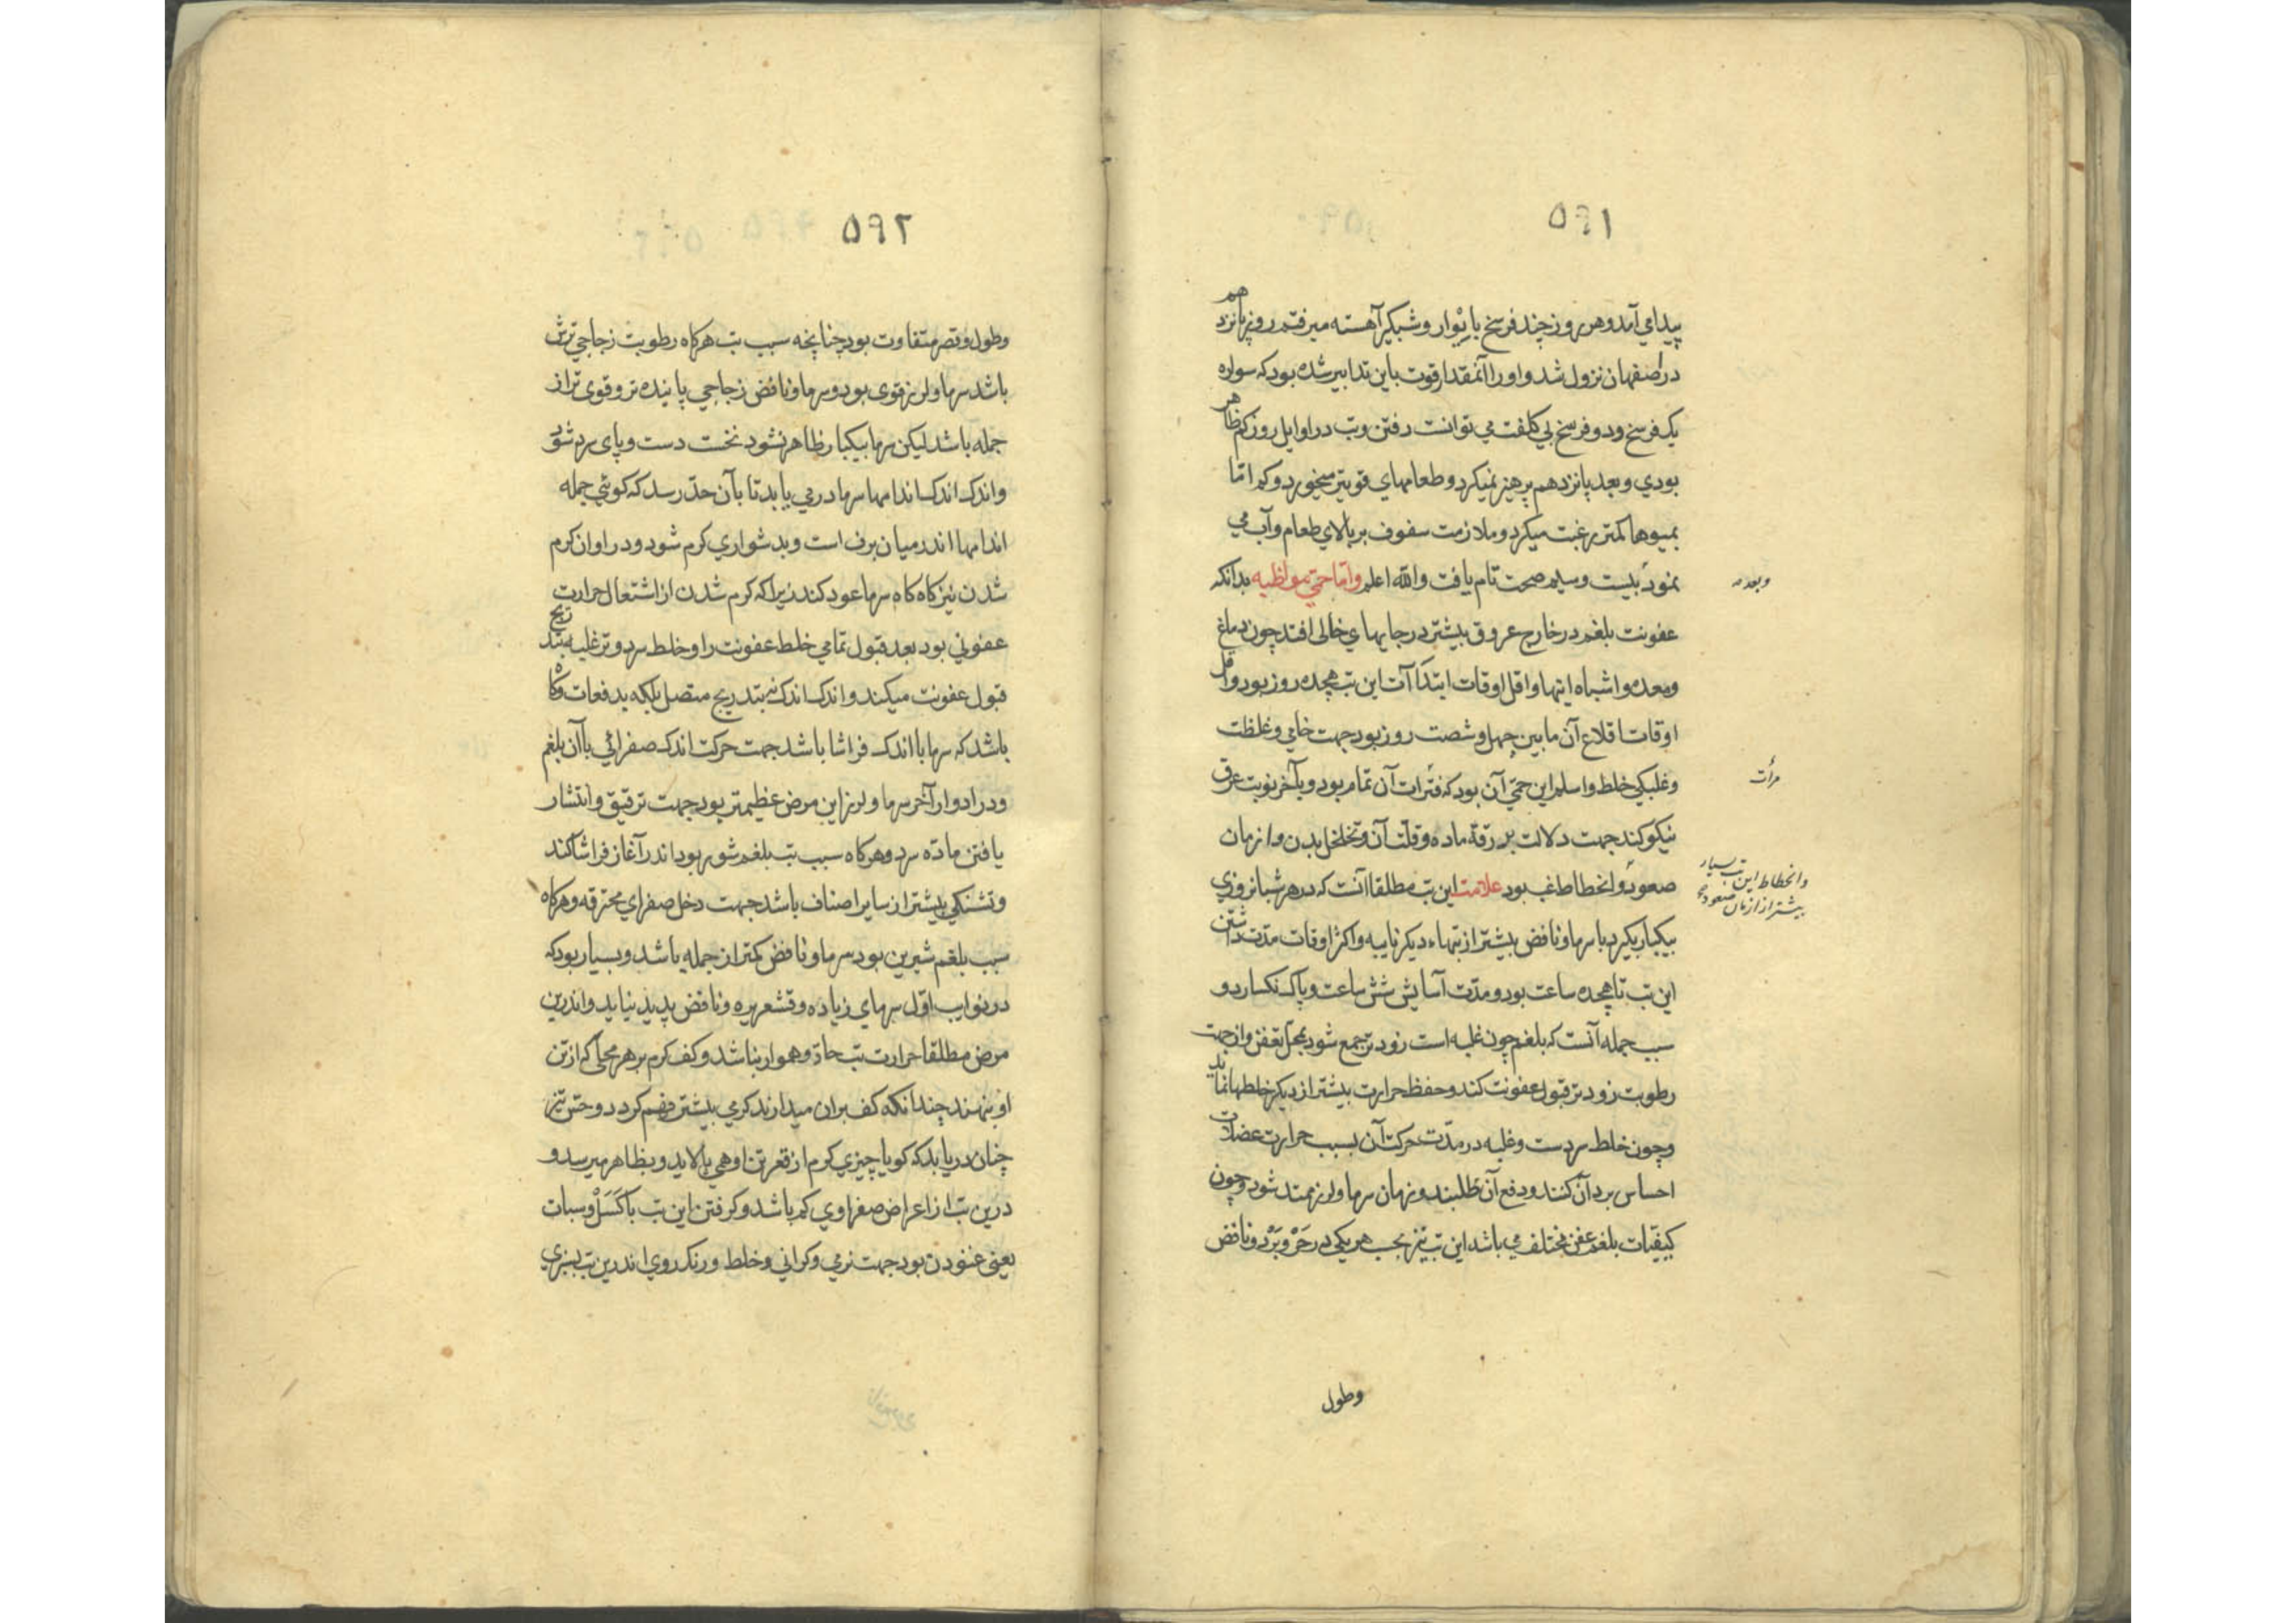 ۵۹۱
پیدا می آمد و هر روز چند فرسخ با یوار و شبکیر آهسته میرفتم روز پانزدهم
در اصفهان نزول شد و او را آنمقدار قوت باین تدابیر شده بود که سواره
یک فرسخ و دو فرسخ بی کلفت می توانست رفتن و تب در اوایل روز کم ظاهر
بودی و بعد پانزدهم پرهیز نمیکرد و طعامهای قویتر میخورد و کم اما
بمیوها کمتر رغبت میکرد و ملازمت سفوف بر بالای طعام و آب می
نمود بیست و سیم صحت تام یافت والله اعلم واما حمّی مواظبه بدانکه
وبعده
عفونت بلغم در خارج عروق بیشتر در جایهای خالی افتد چون دماغ
ومعده و اشباه اینها و اقل اوقات ابتدآات این تب هجده روز بود و اقل
اوقات اقلاع آن ما بین چهل و شصت روز بود جهت خامی و غلظت
وغلبکی خلط و اسلم این حمّی آن بود که فترات آن تمام بود و بآخر نوبت عرق
مرآت
نیکو کند جهت دلالت بر رقة ماده و قلت آن و تخلخل بدن و از زمان
صعود و انحطاط غب بود علامت این تب مطلقا آنست که در هر شبانروزی
وانحطاط این تب بسیار
بیشتر از ازمان صعود
بیکبار بکیرد با سرما و نافض بیشتر از تبهاء دیکر نایبه و اکثر اوقات مدت داشتن
این تب تا هجده ساعت بود و مدت آسایش شش ساعت و پاک نکسارد و
سبب جمله آنست که بلغم چون غلبه است زود تر جمع شود بمحل تعفن و از جهت
رطوبت زود تر قبول عفونت کند و حفظ حرارت بیشتر از دیکر خلطها نماید
وچون خلط سردست و غلبه در مدت حرکت آن بسبب حرارت عضلات
احساس برد آن کنند و دفع آن طلبند و زمان سرما و لرز ممتد شود و چون
کیفیّات بلغم عفن مختلف می باشد این تب نیز بحسب هر یکی در حَرّ و بَرْد و نافض
وطول
۵۹۲
وطول و قصر متفاوت بود چنانچه سبب تب هرکاه رطوبت زجاجی ترش
باشد سرما و لرز قوی بود و سرما و نافض زجاجی پاینده تر و قوی تر از
جمله باشد لیکن سرما بیکبار ظاهر نشود نخست دست و پای سرد شود
واندک اندک اندامها سرما در می یابد تا بآن حدّ رسد که کوئی جمله
اندامها اندر میان برف است و بدشواری کرم شود و در اوان کرم
شدن نیز کاه کاه سرما عود کند زیرا که کرم شدن از اشتعال حرارت
عفونی بود بعد قبول تمامی خلط عفونت را و خلط سرد و تر غلبه بتدریج
قبول عفونت میکند و اندک اندک نه بتدریج متصل بلکه بدفعات و کاه
باشد که سرما با اندک فراشا باشد جهت حرکت اندک صفرائی با آن بلغم
ودر ادوار آخر سرما و لرز این مرض عظیمتر بود جهت ترقیق و انتشار
یافتن مادّه سرد و هرکاه سبب تب بلغم شور بود اندر آغاز فراشا کند
وتشنکی بیشتر از سایر اصناف باشد جهت دخل صفرای محترقه و هرکاه
سبب بلغم شیرین بود سرما و نافض کمتر از جمله باشد و بسیار بود که
در نوایب اوّل سرمای زیاده و قشعریره و نافض پدید نیاید و اندرین
مرض مطلقا حرارت تب حادّ و هموار نباشد و کف کرم بر هر محلی که از تن
او بنهند چندانکه کف بران میدارند کرمی بیشتر فهم کردد و حسّ نیز
چنان دریابد که کویا چیزی کرم از قعر تن او می پالاید و بظاهر میرسد و
درین تب از اعراض صفراوی کم باشد و کرفتن این تب با کَسَلْ و سبات
یعنی غنودن بود جهت نرمی و کرانی و خلط و رنک روی اندرین تب بسبزی